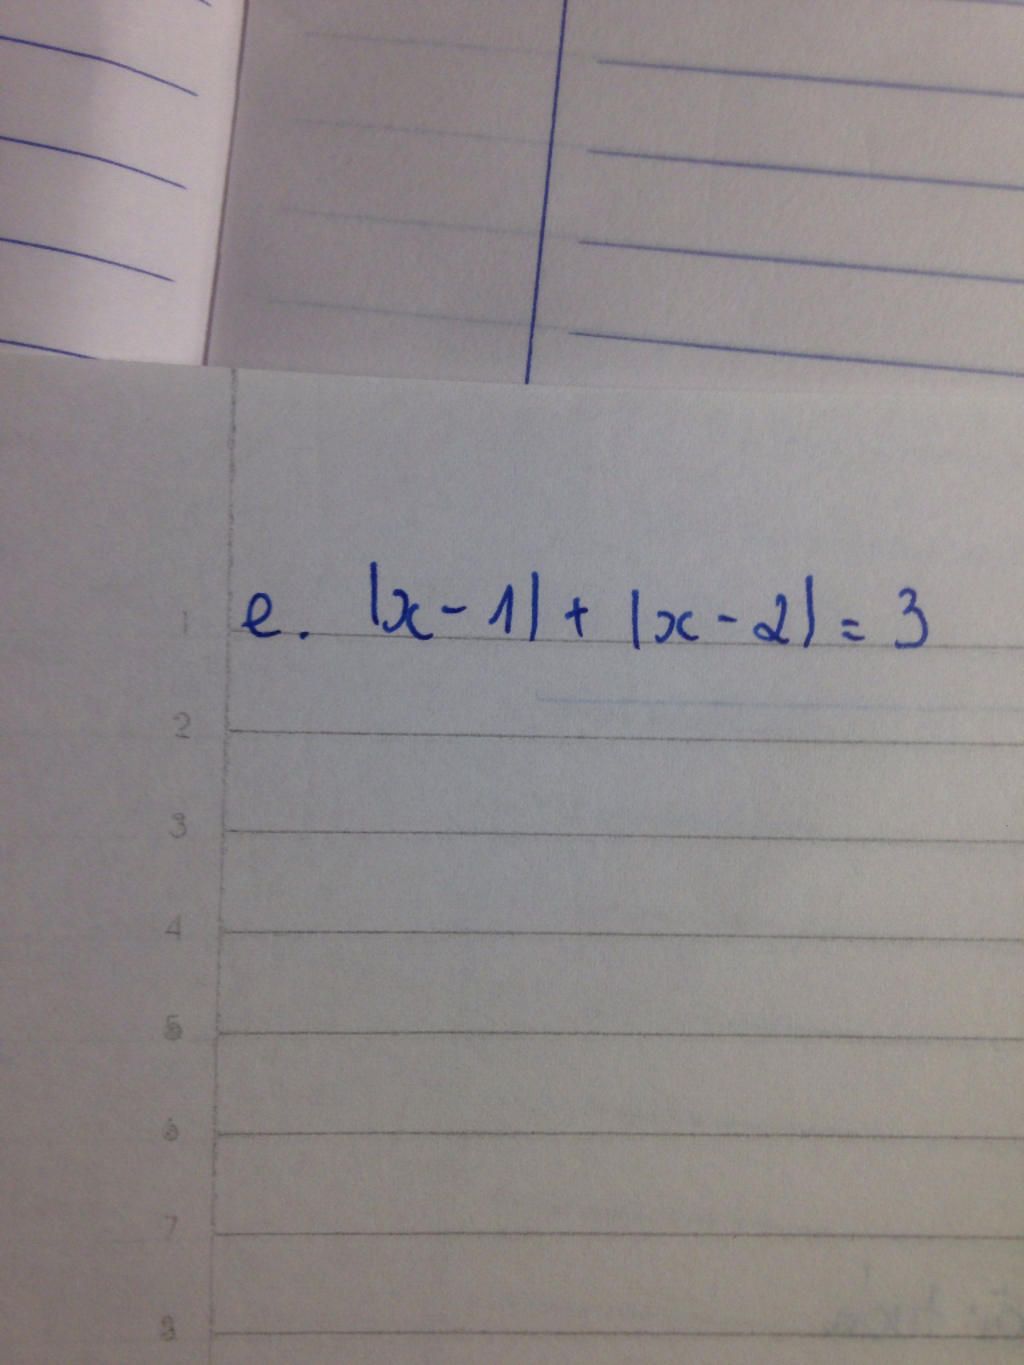 e. |x - 1| + |x - 2| = 3
1
2
3
4
5
6
7
8